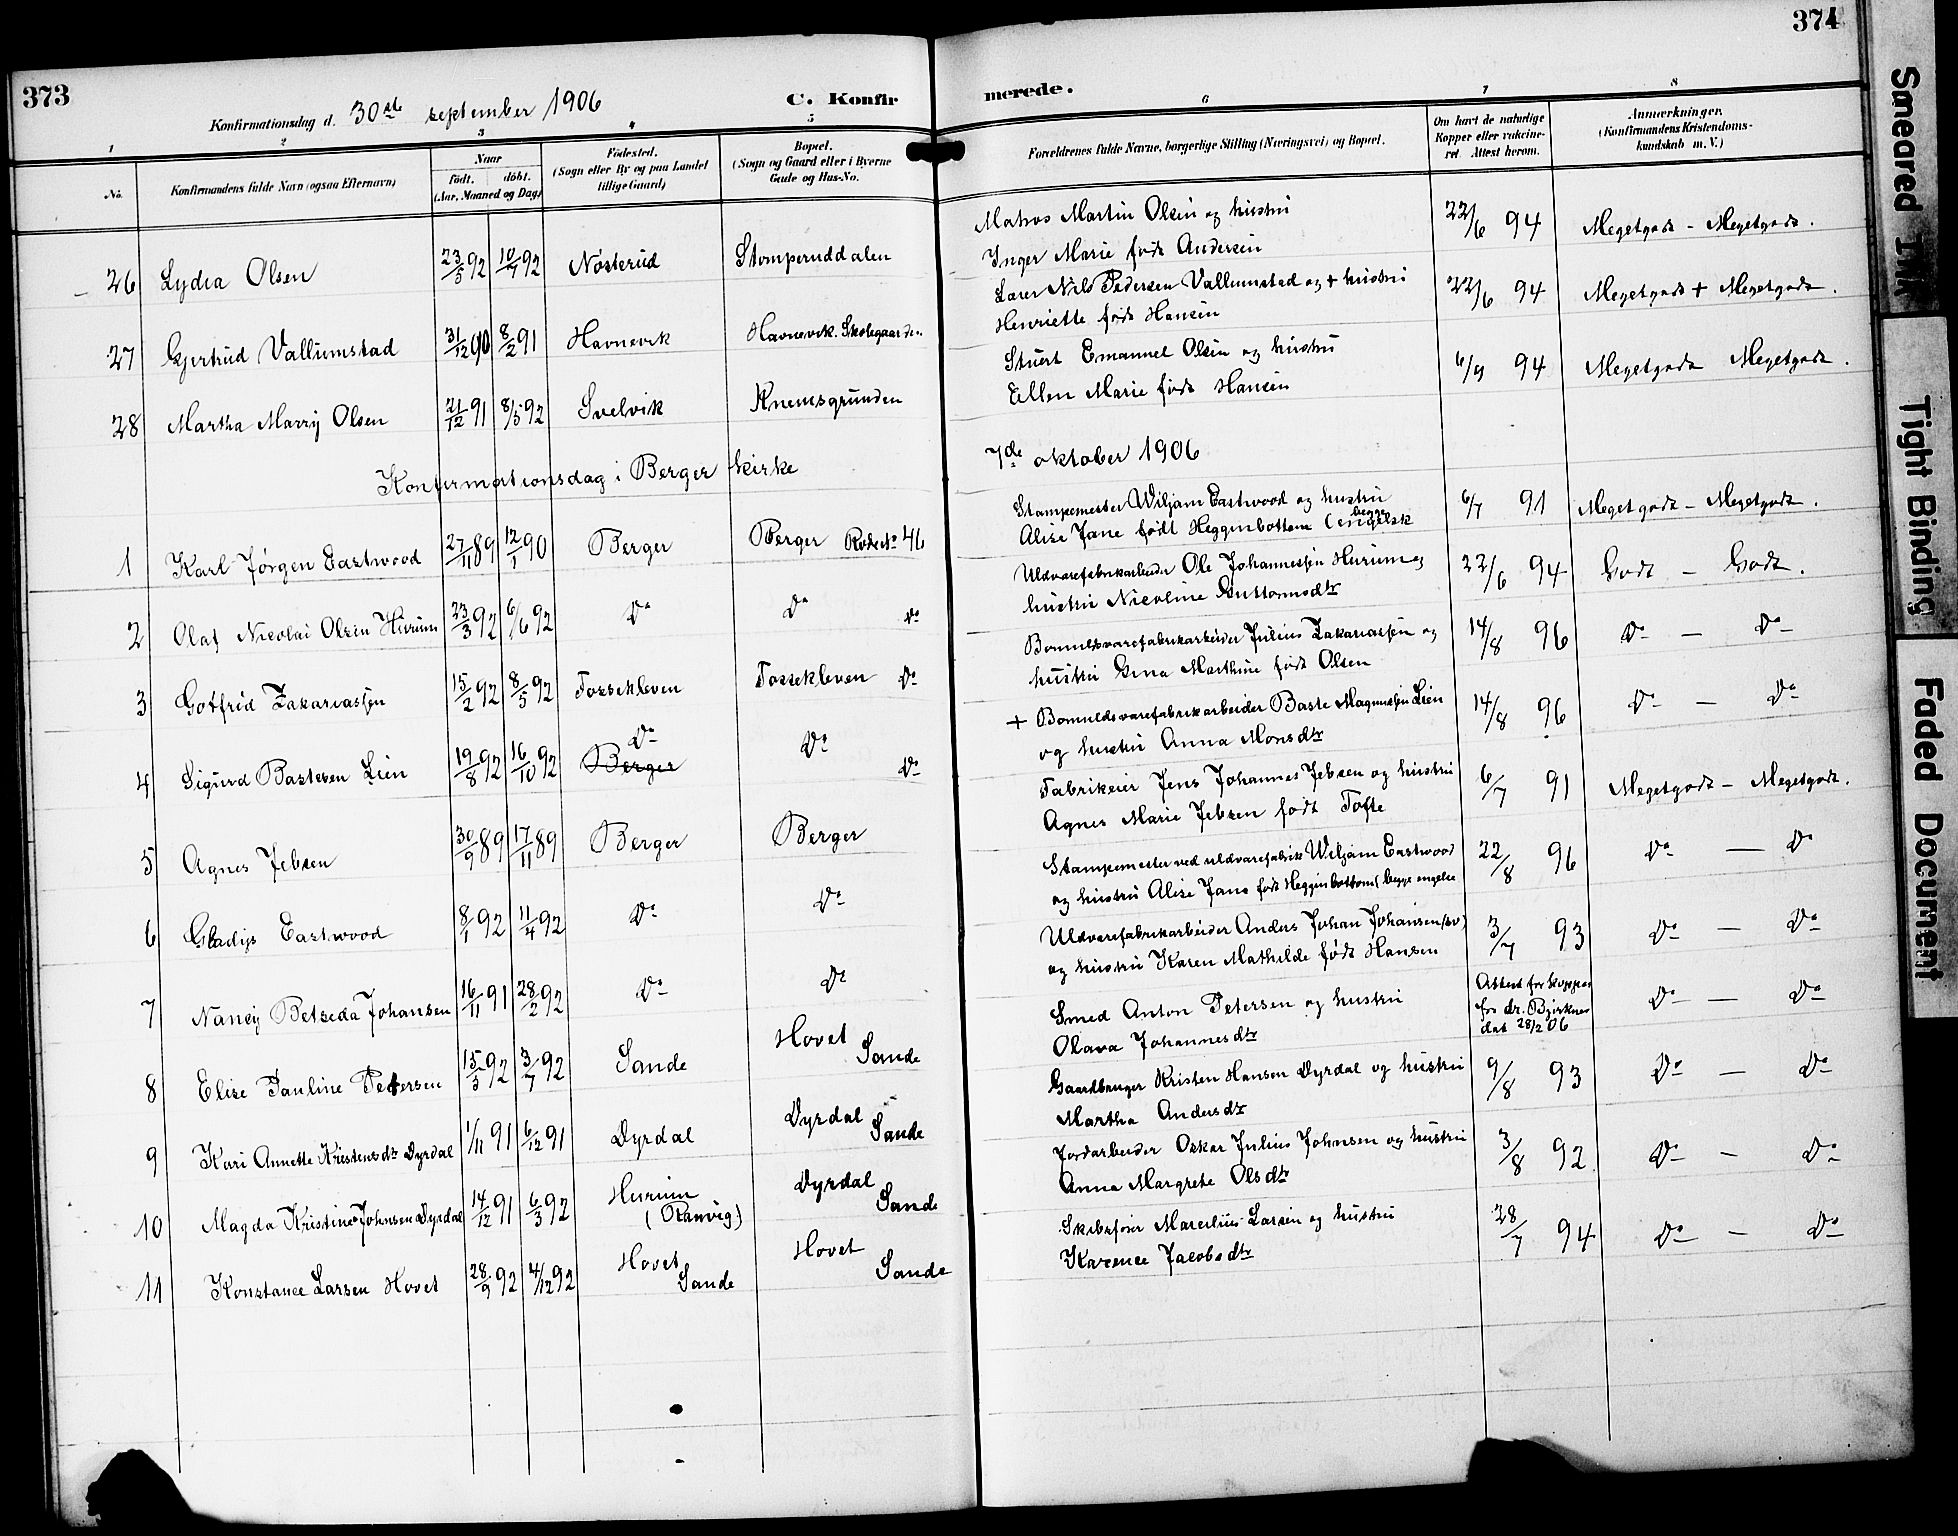 373
Konfirmationsdag d. 30te september 1906
C. Konfir
1 2 3 4 5
No.
Konfirmandens fulde Navn (ogsaa Efternavn)
Naar
født. døbt.
(Aar, Maaned og Dag)
Fødested.
(Sogn eller By og paa Landet
tillige Gaard)
Bopæl.
(Sogn og Gaard eller i Byerne
Gade og Hus-No.
26 Lydia Olsen 23/5 92 10/7 92 Nøsterud Stomperuddalen
27 Gjertrud Vallumstad 31/12 90 8/2 91 Havnevik Havnevik Skolegaarden
28 Martha Marry Olsen 21/12 91 8/5 92 Svelvik Knemsgrunden
Konfirmationsdag i Berger kirke
1 Karl Jørgen Eastwood 27/11 89 12/1 90 Berger Berger Rode No 46
2 Olaf Nicolai Olsen Hurum 23/3 92 6/6 92 Do Do Do
3 Gotfrid Zakariassen 15/2 92 8/5 92 Fossekleven Fossekleven Do
4 Sigurd Bastesen Lien 19/8 92 16/10 92 Do Berger Do Do
5 Agnes Jebsen 30/9 89 17/11 89 Berger Berger
6 Gladys Eastwood 8/1 92 11/4 92 Do Do
7 Nancy Betseda Johansen 16/11 91 28/2 92 Do Do
8 Elise Pauline Petersen 15/3 92 3/7 92 Sande Hovet Sande
9 Kari Annette Kristensdtr Dyrdal 1/11 91 6/12 91 Dyrdal Dyrdal Sande
10 Magda Kristine Johnsen Dyrdal 14/12 91 6/3 92 Hurum Dyrdal Sande
11 Konstance Larsen Hovet 28/9 92 4/12 92 Hovet Sande Hovet Sande
374
merede.
6 7 8
Forældrenes fulde Navne, borgerlige Stilling (Næringsvei) og Bopæl.
Om havt de naturlige
Kopper eller vakcine-
ret. Attest herom.
Anmærkninger.
(Konfirmandens Kristendoms-
kundskab m. V.)
Matros Martin Olsen og hustru 22/6 94 Megetgodt - Megetgodt.
Inger Marie født Andersen
Lærer Nils Pedersen Vallumstad og + hustru 22/6 94 Megetgodt + Megetgodt.
Henriette født Hansen
Stuert Emanuel Olsen og hustru 6/9 94 Megetgodt Megetgodt.
Ellen Marie født Hansen
7de oktober 1906
Stampemester Wiljam Eastwood og hustru 6/7 91 Megetgodt - Megetgodt.
Alise Jane født Heggenbottom (begge engelsk
Uldvarefabrikarbeider Ole Johannessen Hurum og 22/6 94 Godt - Godt.
hustru Nicoline Guttormsdtr
Bomuldsvarefabrikarbeider Julius Zakariassen og 14/8 96 Do - Do
hustru Gina Marthine født Olsen
+ Bomuldsvarefabrikarbeider Baste Magnussen Lien 14/8 96 Do - Do
og hustru Anna Monsdtr
Fabrikeier Jens Johannes Jebsen og hustru 6/7 91 Megetgodt - Megetgodt.
Agnes Marie Jebsen født Tofte
Stampemester ved uldvarefabrik Wiljam Eastwood 22/8 96 Do - Do
og hustru Alise Jane født Heggenbottom (begge engelske
Uldvarefabrikarbeider Anders Johan Johansen (sv) 3/7 93 Do - Do
og hustru Karen Mathilde født Hansen
Smed Anton Petersen og hustru Attest for kopper Do - Do
fra dr. Bjerknes
dat 28/2 06
Olava Johannesdtr
Gaardbruger Kristen Hansen Dyrdal og hustru 9/8 93 Do - Do
Martha Andersdtr
Jordarbeider Oskar Julius Johnsen og hustru 3/8 92 Do - Do
Anna Margrete Olsdtr
Skibsfører Marelius Larsen og hustru 28/7 94 Do - Do
Karence Jacobsdtr
Smeared Ink
Tight Binding
Faded Document